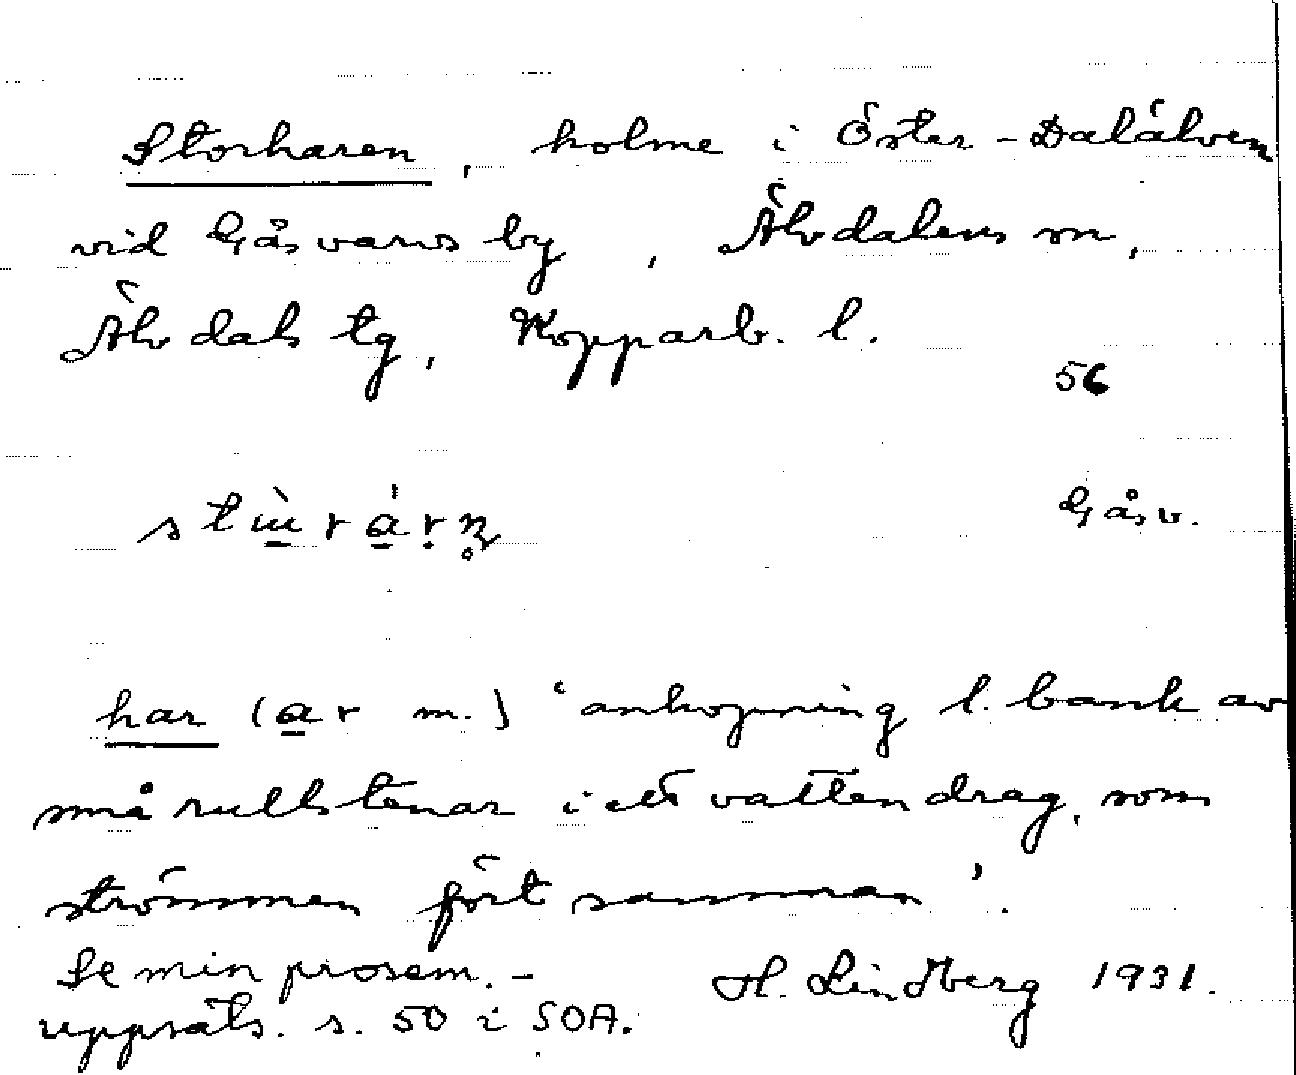 Storharen, holme i Öster-Dalälven
vid Gåsvarvs by, Älvdalens sn,
Älvdals tg, Kopparb. l.
56
stɯ̀rárn̥ Gåsv.
har (ar m.) 'anhopning l. bank av
små rullstenar i ett vattendrag, som
strömmen fört samman'.
Se min prosem.-
uppsats. s. 50 i SOA.
H. Lindberg 1931.